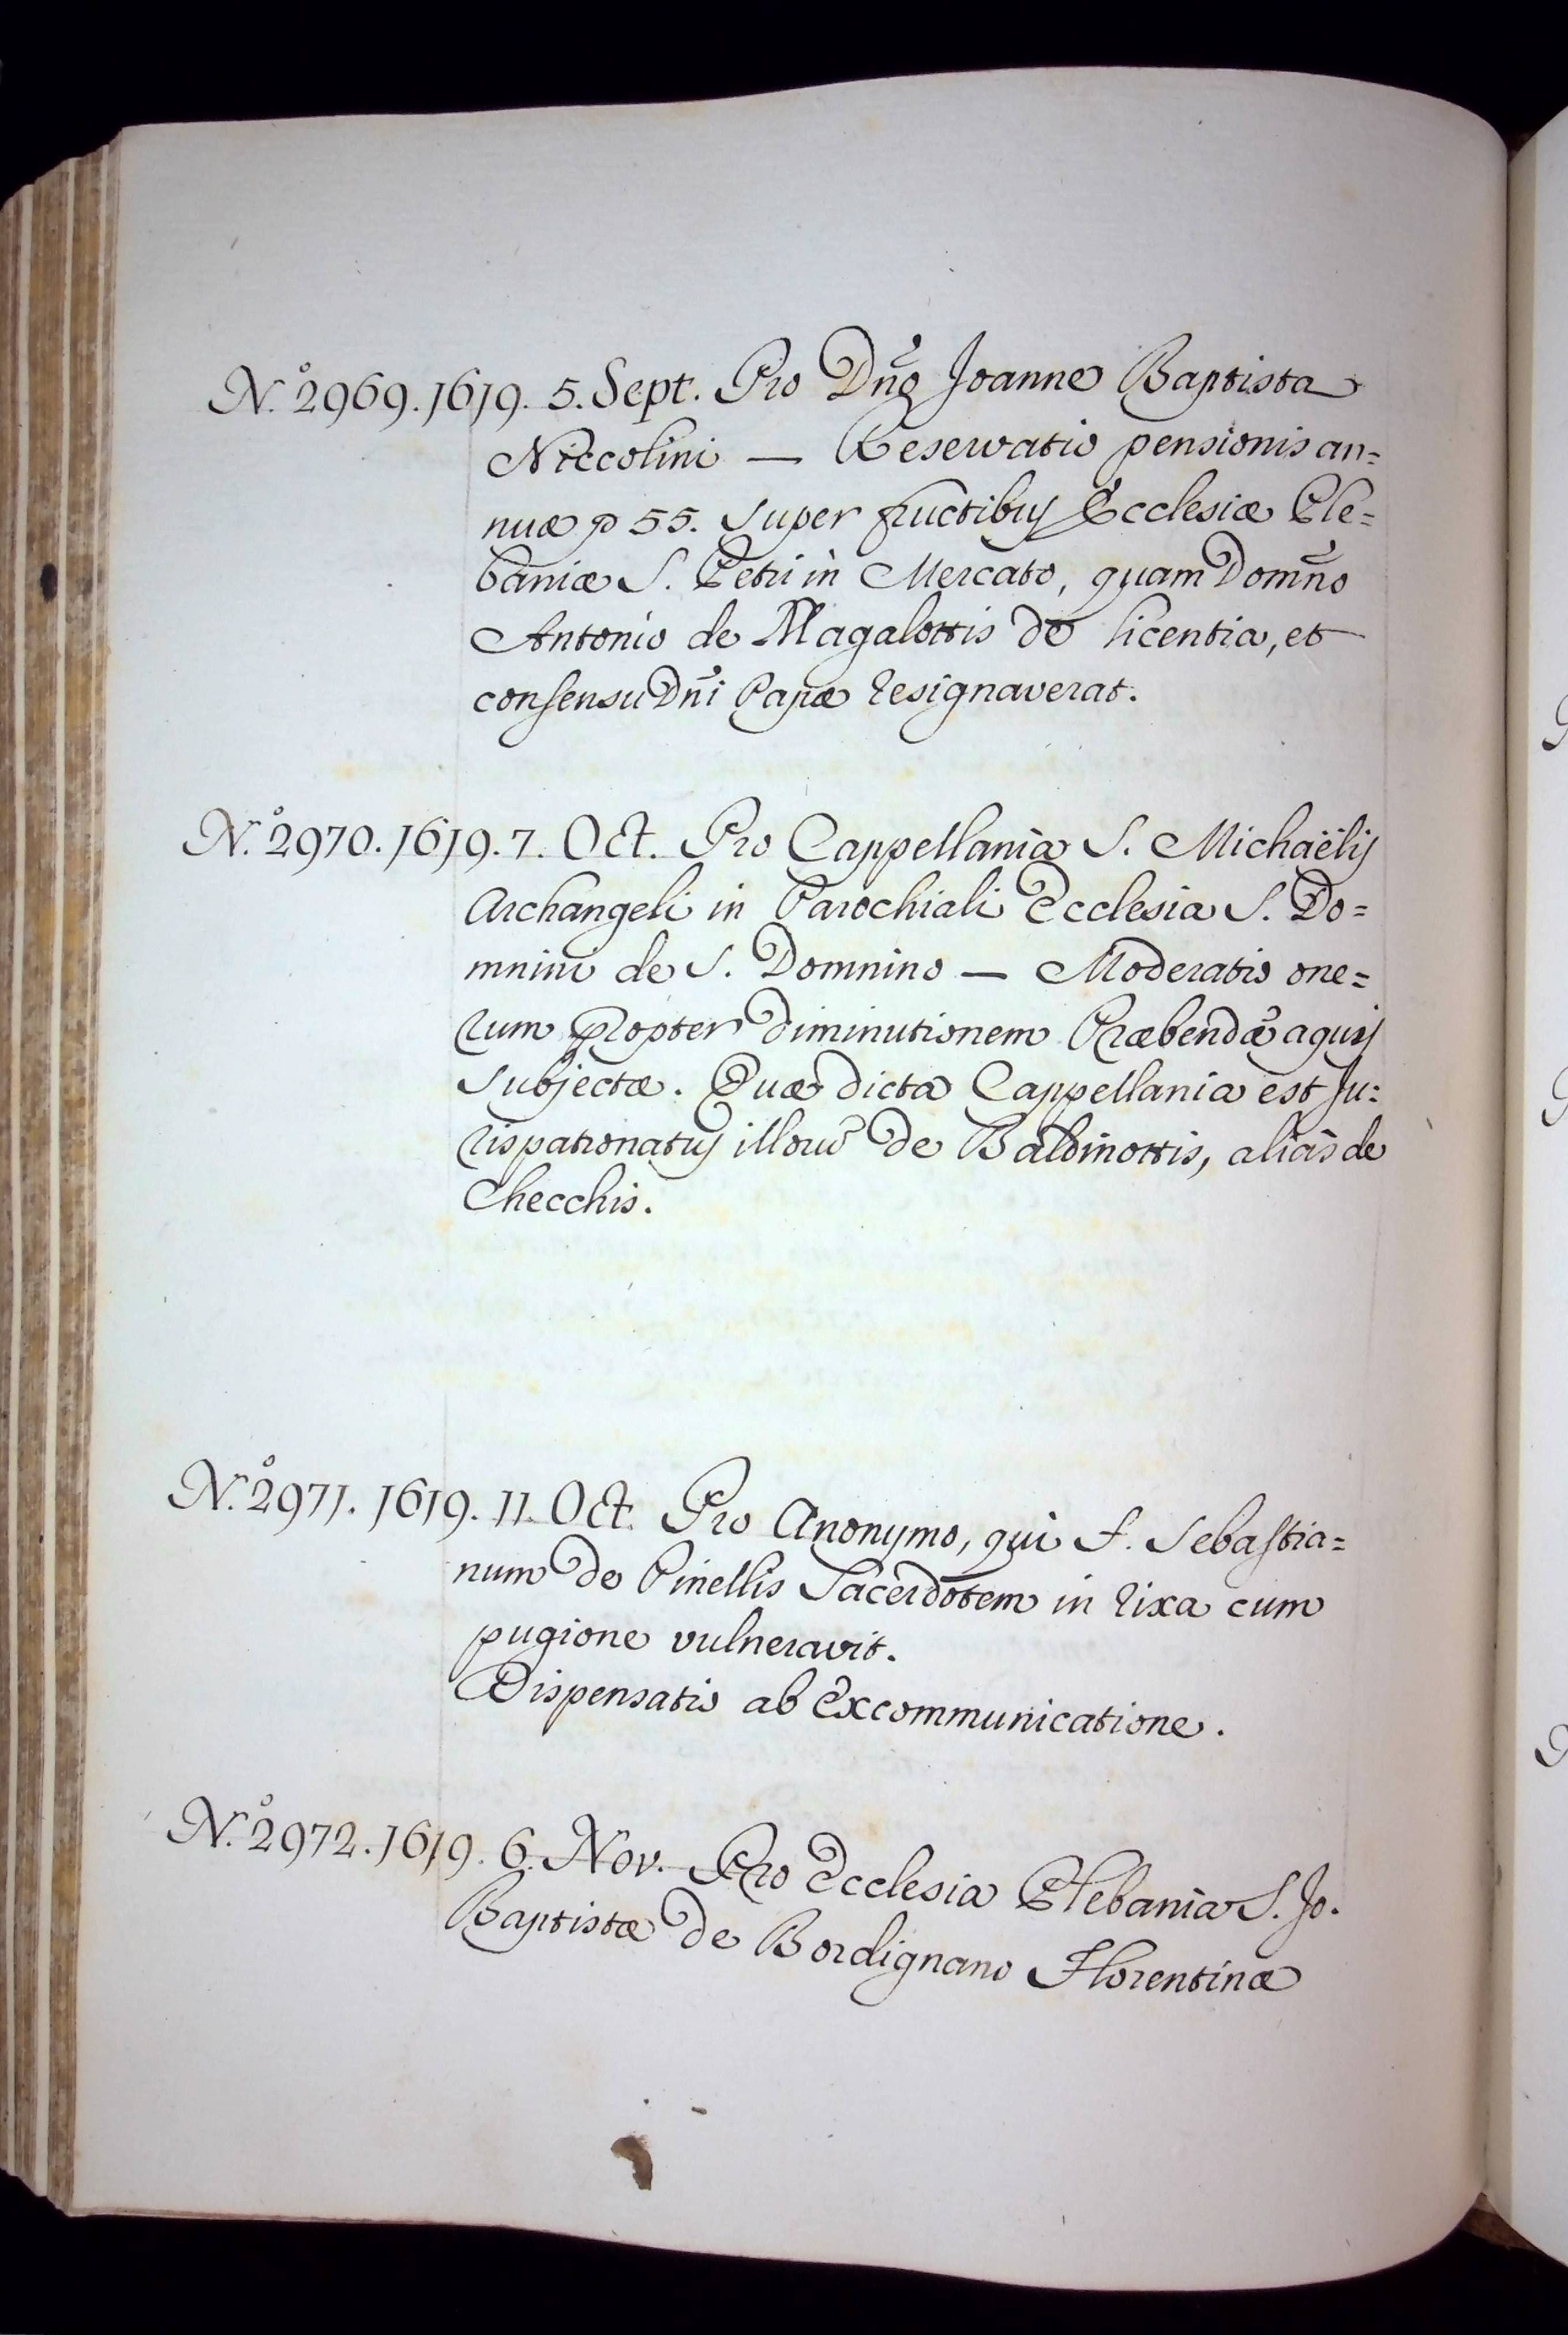 N.º 2969. 1619. 5. Sept. Pro Dn̄o Joanne Baptista
Niccolini — Reservatio pensionis an=
nuæ p 55. super fructibus Ecclesiæ Ple=
baniæ S. Petri in Mercato, quam Domn̄o
Antonio de Magalottis de licentia, et
consensu Dn̄i Papæ resignaverat.
N.º 2970. 1619. 7. Oct. Pro Cappellania S. Michaëlis
Archangeli in Parochiali Ecclesia S. Do=
mnini de S. Domnino — Moderatio one=
rum propter diminutionem Præbendæ aquis
subjectæ. Quæ dicta Cappellania est Ju=
rispatronatus illorū de Baldinottis, aliàs de
Checchis.
N.º 2971. 1619. 11. Oct. Pro Anonymo, qui F. Sebastia=
num de Pinellis Sacerdotem in rixa cum
pugione vulneravit.
Dispensatio ab Excommunicatione.
N.º 2972. 1619. 6. Nov. Pro Ecclesia Plebania S. Jo.
Baptistæ de Bordignano Florentinæ